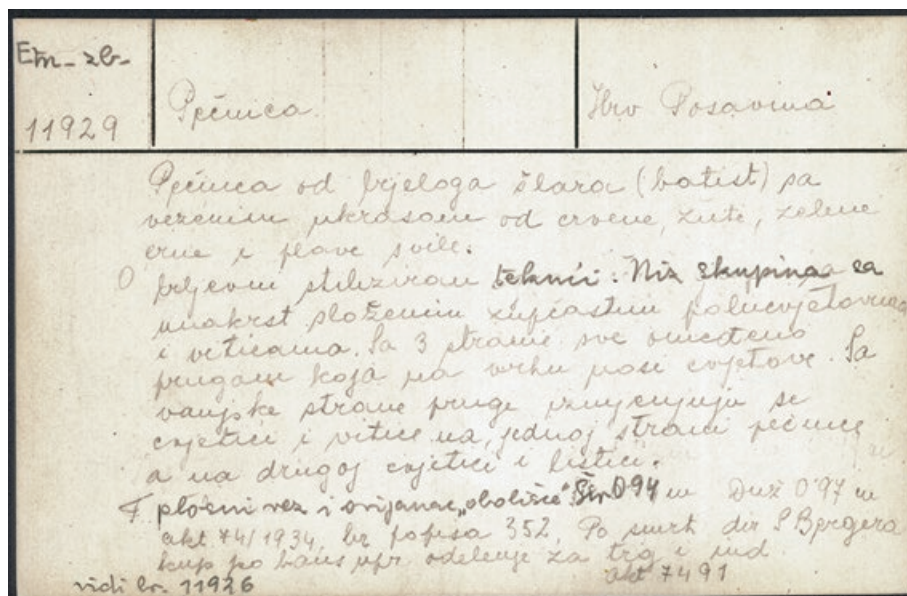 Etn-zb-
11929
Pećnica
Hrv Posavina
Pećnica od bijeloga šlara (batist) sa
vezenim ukrasom od crvene, žute, zelene
crne i plave svile.
O biljevni stiliziran tehnici. Niz skupina sa
unakrst složenim zupčastim polucvjetovima
i viticama. Sa 3 strane sve omeđeno
prugam koja na vrhu nosi cvjetove. Sa
vanjske strane pruge izmjenjuju se
cvjetići i vitice na jednoj strani pećnice
a na drugoj cvjetići i listići.
T pločni vez i ovijanac „obališće" Šir 0 94 m Duž 0'97 m
akt 74/1934, br popisa 352, Po smrt dir S Bergera
kup po bans upr odelenje za trg i ind
vidi br. 11926
akt 7491